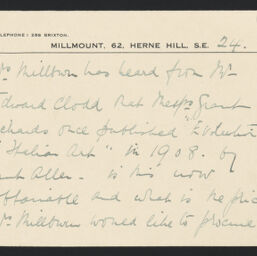 ELEPHONE: 286 BRIXTON.
MILLMOUNT, 62, HERNE HILL, S.E. 24.
rs Millburn has heard from Mr
Edward Clodd that Messrs Grant
ichards once published "Evolution
"Italian Art" in 1908. by
ant Allen. is this now
obtainable and what is the pric
rs Millburn would like to procure